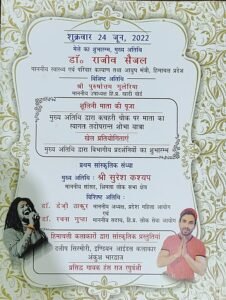 शुक्रवार 24 जून, 2022
मेले का शुभारम्भ, मुख्य अतिथि
डॉ० राजीव सैजल
माननीय स्वास्थ्य एवं परिवार कल्याण तथा आयुष मंत्री, हिमाचल प्रदेश
विशिष्ट अतिथि
श्री पुरुषोत्तम गुलेरिया
माननीय उपाध्यक्ष हि.प्र. खादी बोर्ड
शूलिनी माता की पूजा
मुख्य अतिथि द्वारा कचहरी चौक पर माता का
स्वागत तदोपरान्त शोभा यात्रा
खेल प्रतियोगिताएं
मुख्य अतिथि द्वारा विभागीय प्रदर्शनियों का शुभारम्भ
प्रथम सांस्कृतिक संध्या
मुख्य अतिथि : श्री सुरेश कश्यप
माननीय सांसद, शिमला लोक सभा क्षेत्र
विशिष्ट अतिथि
डॉ. डेज़ी ठाकुर माननीय अध्यक्ष, प्रदेश महिला आयोग
एवं
डॉ. रचना गुप्ता माननीय सदस्य, हि.प्र. लोक सेवा आयोग
हिमाचली कलाकारों द्वारा सांस्कृतिक प्रस्तुतियां
दलीप सिरमौरी, इण्डियन आईडल कलाकार
अंकुश भारद्वाज
प्रसिद्ध गायक हंस राज रघुवंशी